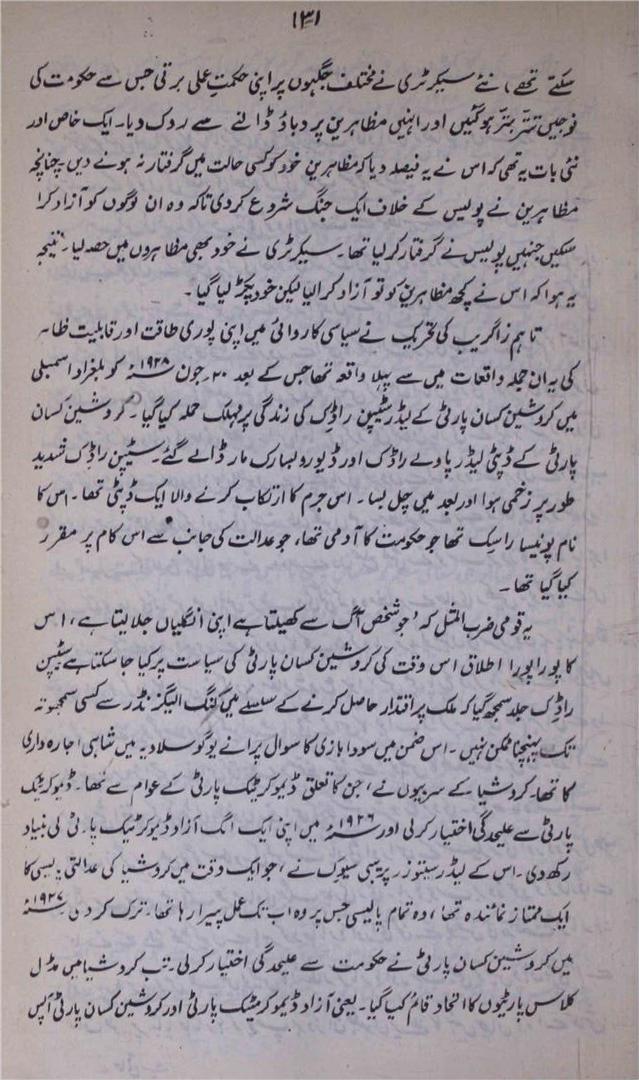 ۱۳۱
سکتے تھے، نئے سیکرٹری نے مختلف جگہوں پر اپنی حکمتِ علی برتی جس سے حکومت کی
فوجیں تتر بتر ہوگئیں اور انہیں مظاہرین پر دباؤ ڈالنے سے روک دیا۔ ایک خاص اور
نئی بات یہ تھی کہ اس نے یہ فیصلہ دیا کہ مظاہرین خود کو کسی حالت میں گرفتار نہ ہونے دیں۔ چنانچہ
مظاہرین نے پولیس کے خلاف ایک جنگ شروع کر دی تاکہ وہ ان لوگوں کو آزاد کرا
سکیں جنہیں پولیس نے گرفتار کر لیا تھا۔ سیکرٹری نے خود بھی مظاہروں میں حصہ لیا۔ نتیجہ
یہ ہوا کہ اس نے کچھ مظاہرین کو تو آزاد کرا لیا لیکن خود پکڑ لیا گیا۔
تاہم زاگریب کی تحریک نے سیاسی کاروائی میں اپنی پوری طاقت اور قابلیت ظاہر
کی یہ ان جملہ واقعات میں سے پہلا واقعہ تھا جس کے بعد ۲۰۔جون ۱۹۲۸ء کو بلغراد اسمبلی
میں کروشین کسان پارٹی کے لیڈر سٹیپن راڈک کی زندگی پر مہلک حملہ کیا گیا۔ کروشین کسان
پارٹی کے ڈپٹی لیڈر پاولے راڈک اور ڈیورو بسارک مار ڈالے گئے۔ سٹیپن راڈک شدید
طور پر زخمی ہوا اور بعد میں چل بسا۔ اس جرم کا ارتکاب کرنے والا ایک ڈپٹی تھا۔ اس کا
نام پونیسا راسک تھا جو حکومت کا آدمی تھا، جو عدالت کی جانب سے اس کام پر مقرر
کیا گیا تھا۔
یہ قومی ضرب المثل کہ ’جو شخص آگ سے کھیلتا ہے اپنی انگلیاں جلا لیتا ہے، اس
کا پورا پورا اطلاق اس وقت کی کروشین کسان پارٹی کی سیاست پر کیا جا سکتا ہے سٹیپن
راڈک جلد سمجھ گیا کہ ملک پر اقتدار حاصل کرنے کے سلسلے میں کنگ الیگزنڈر سے کسی سمجھوتہ
تک پہنچنا ممکن نہیں۔ اس ضمن میں سودا بازی کا سوال پرانے یوگوسلاویہ میں شاہی اجارہ داری
کا تھا۔ کروشیا کے سربیوں نے، جن کا تعلق ڈیموکریٹک پارٹی کے عوام سے تھا۔ ڈموکریٹک
پارٹی سے علیحدگی اختیار کر لی اور ۱۹۲۶ء میں اپنی ایک الگ آزاد ڈیموکریٹک پارٹی کی بنیاد
رکھ دی۔ اس کے لیڈر سیتوزر پریبی سیوک نے، جو ایک وقت میں کروشیا کی عدالتی پالیسی کا
ایک ممتاز نمائندہ تھا، وہ تمام پالیسی جس پر وہ اب تک عمل پیرا رہا تھا۔ ترک کر دی ۱۹۲۷ء
میں کروشین کسان پارٹی نے حکومت سے علیحدگی اختیار کر لی۔ تب کروشیا میں مڈل
کلاس پارٹیوں کا اتحاد قائم کیا گیا۔ یعنی آزاد ڈیموکریٹک پارٹی اور کروشین کسان پارٹی آپس